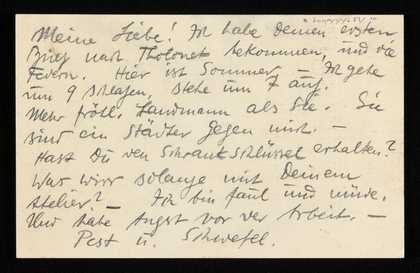 Meine Liebe! Ich habe Deinen ersten
Brief nach Tholonet bekommen, und die
Federn. Hier ist Sommer. – Ich gehe
um 9 schlafen, stehe um 7 auf.
Mehr Landmann als Sie. Sie
sind ein Städter gegen mich. –
Hast Du den Schrankschlüssel erhalten?
Was wird solange mit Deinem
Atelier? – Ich bin faul und müde.
Und habe Angst vor der Arbeit. –
Pest u. Schwefel.